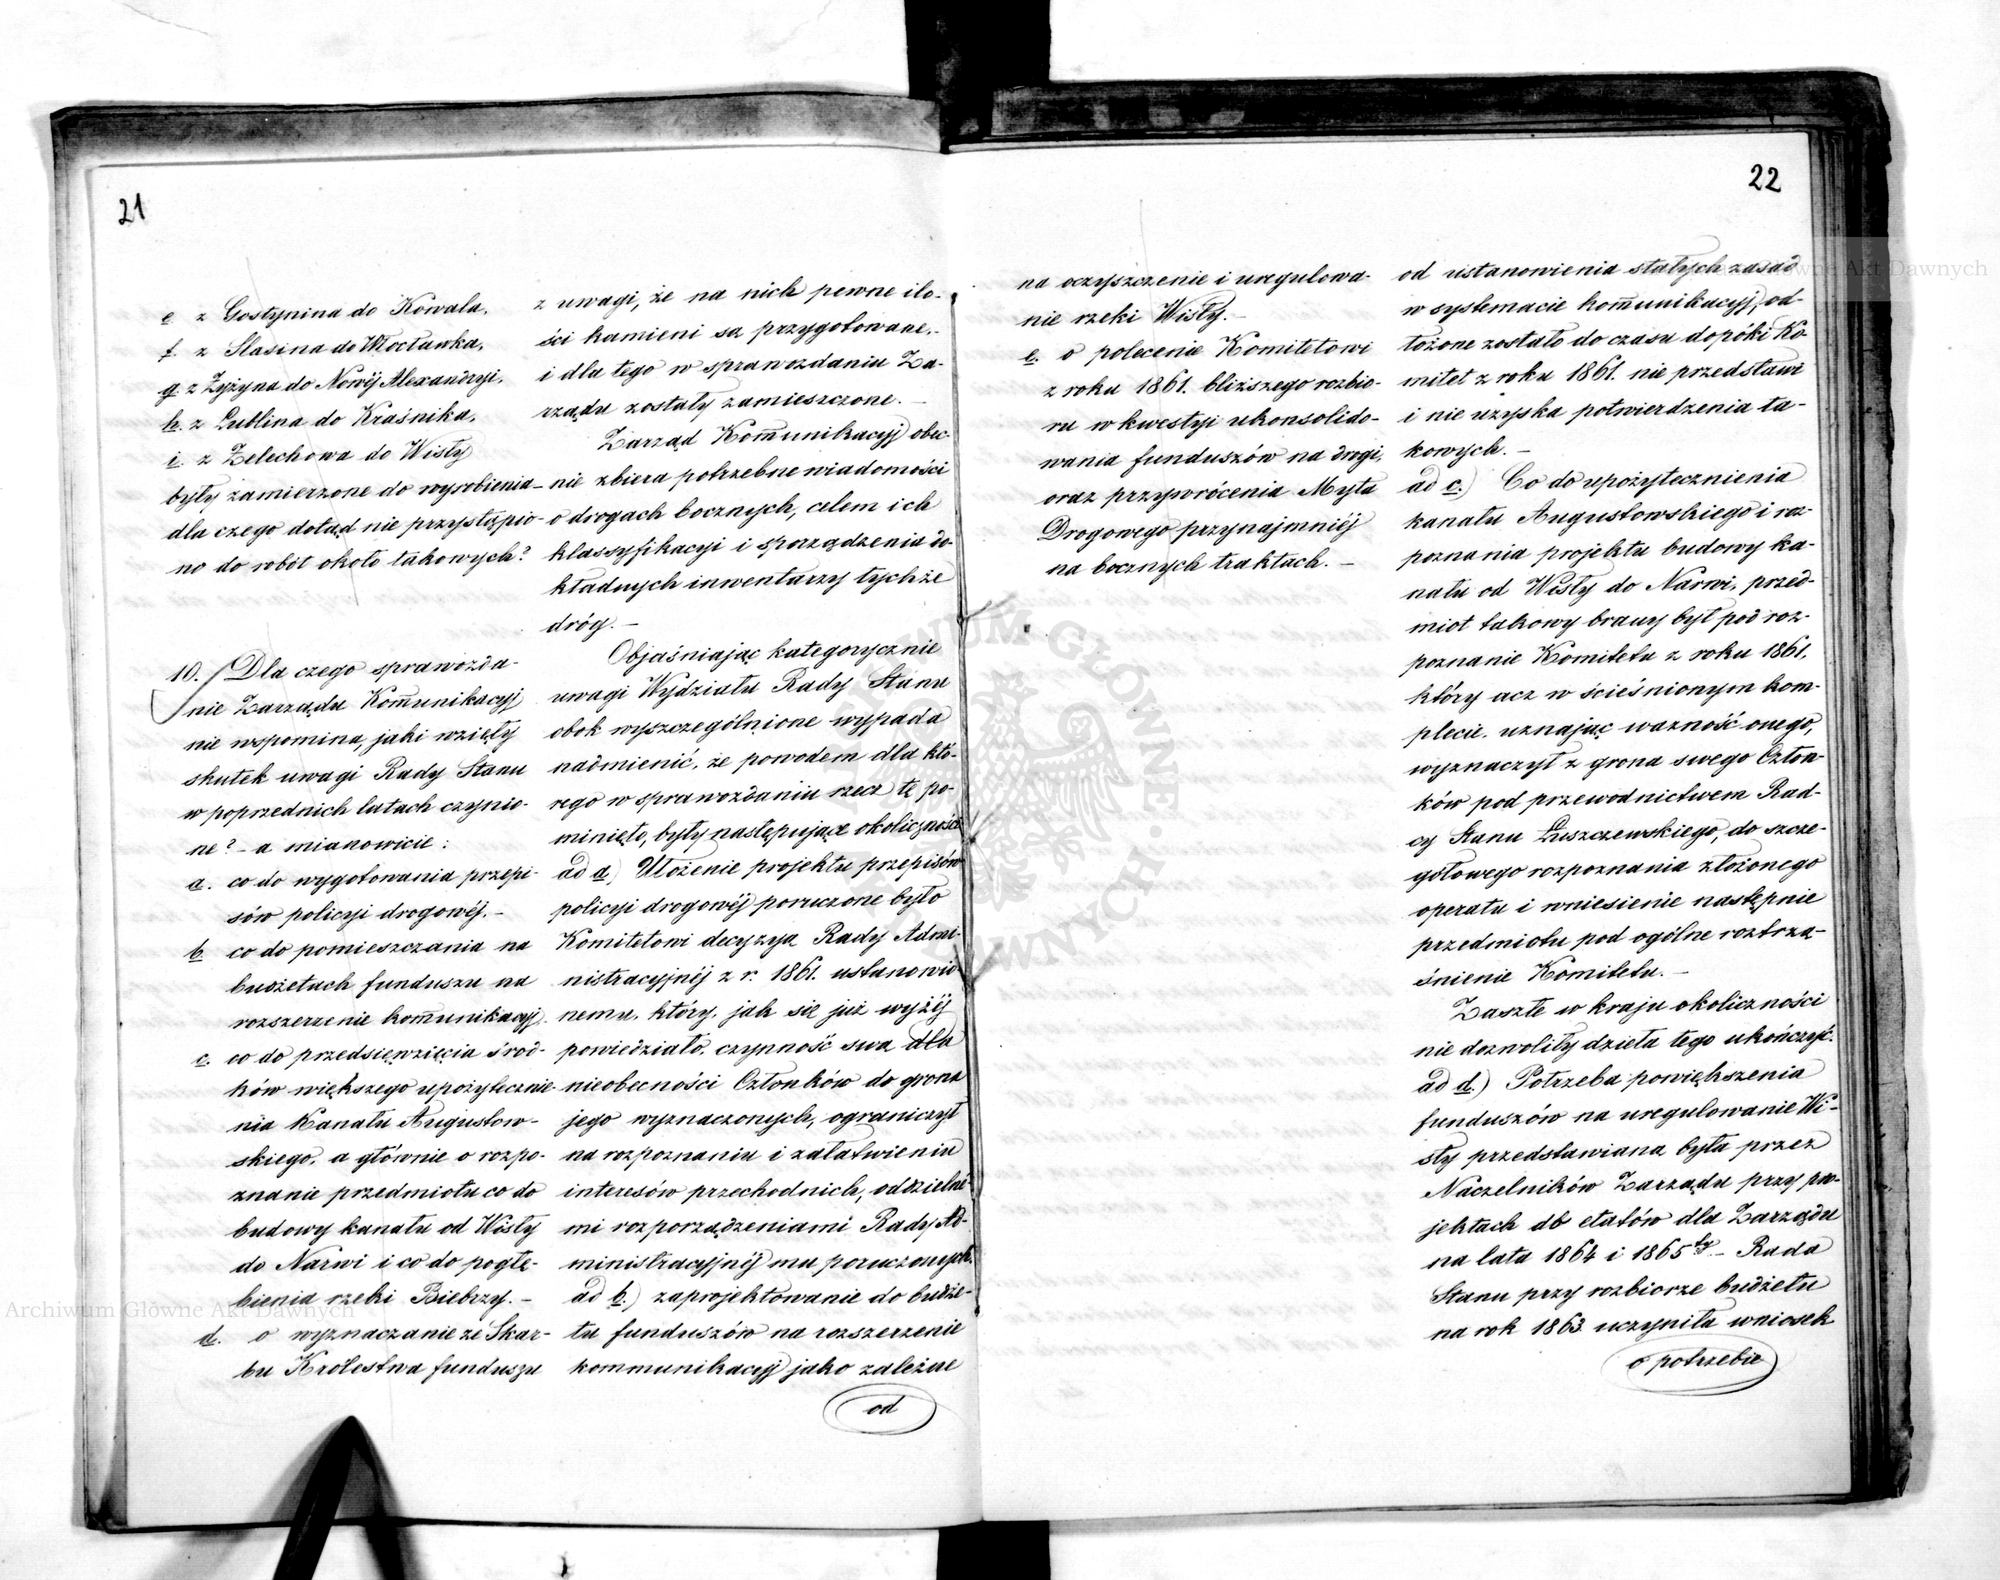 21
e z Gostynina do Kowala,
f. z Slasina do Włocławka,
g. z Żyżyna do Nowéj Alexandryi,
h. z Lublina do Kraśnika,
i. z Żelechowa do Wisły
były zamierzone do wyrobienia
dla czego dotąd nie przystąpio-
no do robót około takowych?
10. Dla czego sprawozda-
nie Zarządu Kom̄unikacyj
nie wspomina, jaki wzięły
skutek uwagi Rady Stanu
w poprzednich latach czynio-
ne? – a mianowicie:
a. co do wygotowania przepi-
sów policyi drogowéj. –
b. co do pomieszczania na
budżetach funduszu na
rozszerzenie kom̄unikacyj.
c. co do przedsięwzięcia środ-
ków większego upożytecznie
nia Kanału Augustow-
skiego, a głównie o rozpo-
znanie przedmiotu co do
budowy kanału od Wisły
do Narwi i co do pogłę-
bienia rzeki Biebrzy. –
d. o wyznaczanie ze Skar-
bu Królestwa funduszu
z uwagi, że na nich pewne ilo-
ści kamieni są przygotowane,
i dla tego w sprawozdaniu Za-
rządu zostały zamieszczone. –
Zarząd Kom̄unikacyj obec-
nie zbiera potrzebne wiadomości
o drogach bocznych, celem ich
klassyfikacyi i sporządzenia do-
kładnych inwentarzy tychże
dróg. –
Objaśniając kategorycznie
uwagi Wydziału Rady Stanu
obok wyszczególnione wypada
nadmienić, że powodem dla któ-
rego w sprawozdaniu rzecz tę po-
minięto, były następujące okoliczności
ad a.) Ułożenie projektu przepisów
policyi drogowéj poruczone było
Komitetowi decyzyą Rady Admi-
nistracyjnéj z r. 1861. ustanowio-
nemu, który, jak się już wyżéj
powiedziało, czynność swą dla
nieobecności Członków do grona
jego wyznaczonych, ograniczył
na rozpoznaniu i załatwieniu
interesów przechodnich, oddzielne-
mi rozporządzeniami Rady Ad-
ministracyjnéj mu poruczonych.
ad b.) zaprojektowanie do budże-
tu funduszów na rozszerzenie
kommunikacyj jako zależne
od
22
na oczyszczenie i uregulowa-
nie rzeki Wisły. –
e. o polecenie Komitetowi
z roku 1861. bliższego rozbio-
ru w kwestyi ukonsolido-
wania funduszów na drogi,
oraz przywrócenia Myta
Drogowego przynajmniéj
na bocznych traktach. –
od ustanowienia stałych zasad
w systemacie kom̄unikacyj, od-
łożone zostało do czasu dopóki Ko-
mitet z roku 1861. nie przedstawi
i nie uzyska potwierdzenia ta-
kowych. –
ad c.) Co do upożytecznienia
kanału Augustowskiego i roz-
poznania projektu budowy ka-
nału od Wisły do Narwi, przed-
miot takowy brany był pod roz-
poznanie Komitetu z roku 1861,
który acz w ścieśnionym kom-
plecie, uznając ważność onego,
wyznaczył z grona swego Człon-
ków pod przewodnictwem Rad-
cy Stanu Łuszczewskiego, do szcze-
gółowego rozpoznania złożonego
operatu i wniesienie następnie
przedmiotu pod ogólne roztrzą-
śnienie Komitetu. –
Zaszłe w kraju okoliczności
nie dozwoliły dzieła tego ukończyć.
ad d.) Potrzeba powiększenia
funduszów na uregulowanie Wi-
sły przedstawiana była przez
Naczelników Zarządu przy pro-
jektach do etatów dla Zarządu
na lata 1864 i 1865ty. – Rada
Stanu przy rozbiorze budżetu
na rok 1863 uczyniła wniosek
o potrzebie
Archiwum Główne Akt Dawnych